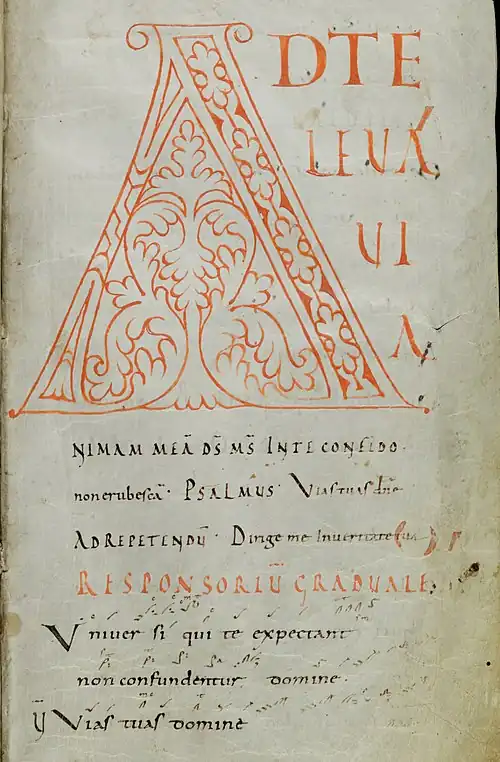 AD TE
LEUA
UI
A
NIMAM MEĀ DS̄ MS̄ INTE CONFIDO·
non erubescā· PSALMUS· Vias tuas dn̄e
AD REPETENDŪ· Dirige me In veritate tua
RESPONSORIŪ GRADUALE
Vniuersi qui te expectant
non confundentur domine·
V̄ Vias tuas domine